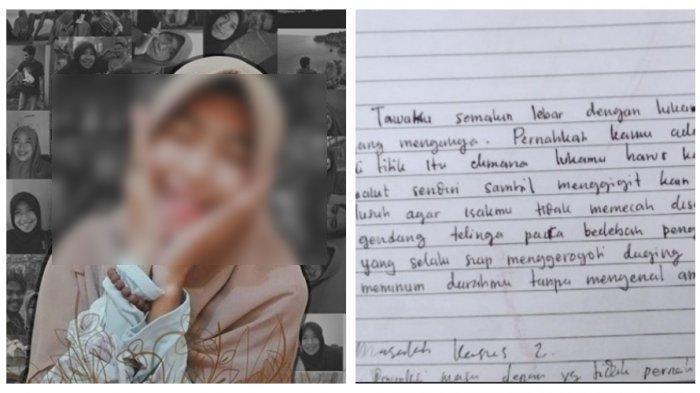 Tawaku semakin lebar dengan luka
ang menganga. Pernahkah kamu ada
i titik itu dimana lukamu harus k
alut sendiri sambil menggigit kain
lusuh agar isakmu tidak memecah
gendang telinga para bedebah
yang selalu siap menggerogoti daging
meminum darahmu tanpa mengenal am
Masalah Kasus 2.
masa depan yg tidak pernah